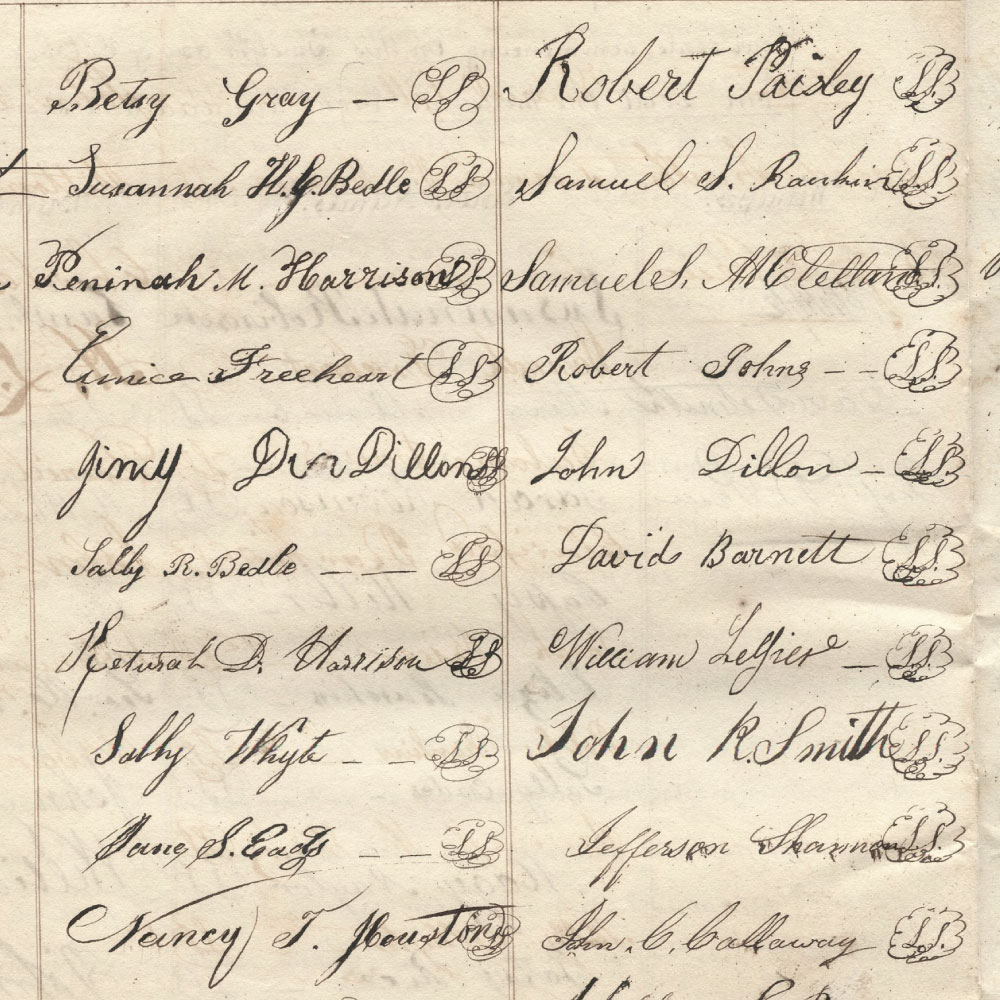 Betsy Gray — LS
Susannah H. G. Bedle LS
Peninah M. Harrison LS
Eunice Freeheart LS
Jincy Dillon LS
Sally R. Bedle — — LS
Keturah D. Harrison LS
Sally Whyte — — LS
Jane S. Eads — — LS
Nancy T. Houston LS
Robert Paisley LS
Samuel S. Rankin LS
Samuel S. McClelland LS
Robert Johns — — LS
John Dillon — LS
David Barnett LS
William LeGrier — LS
John R. Smith LS
Jefferson Shannon LS
John. C. Callaway LS